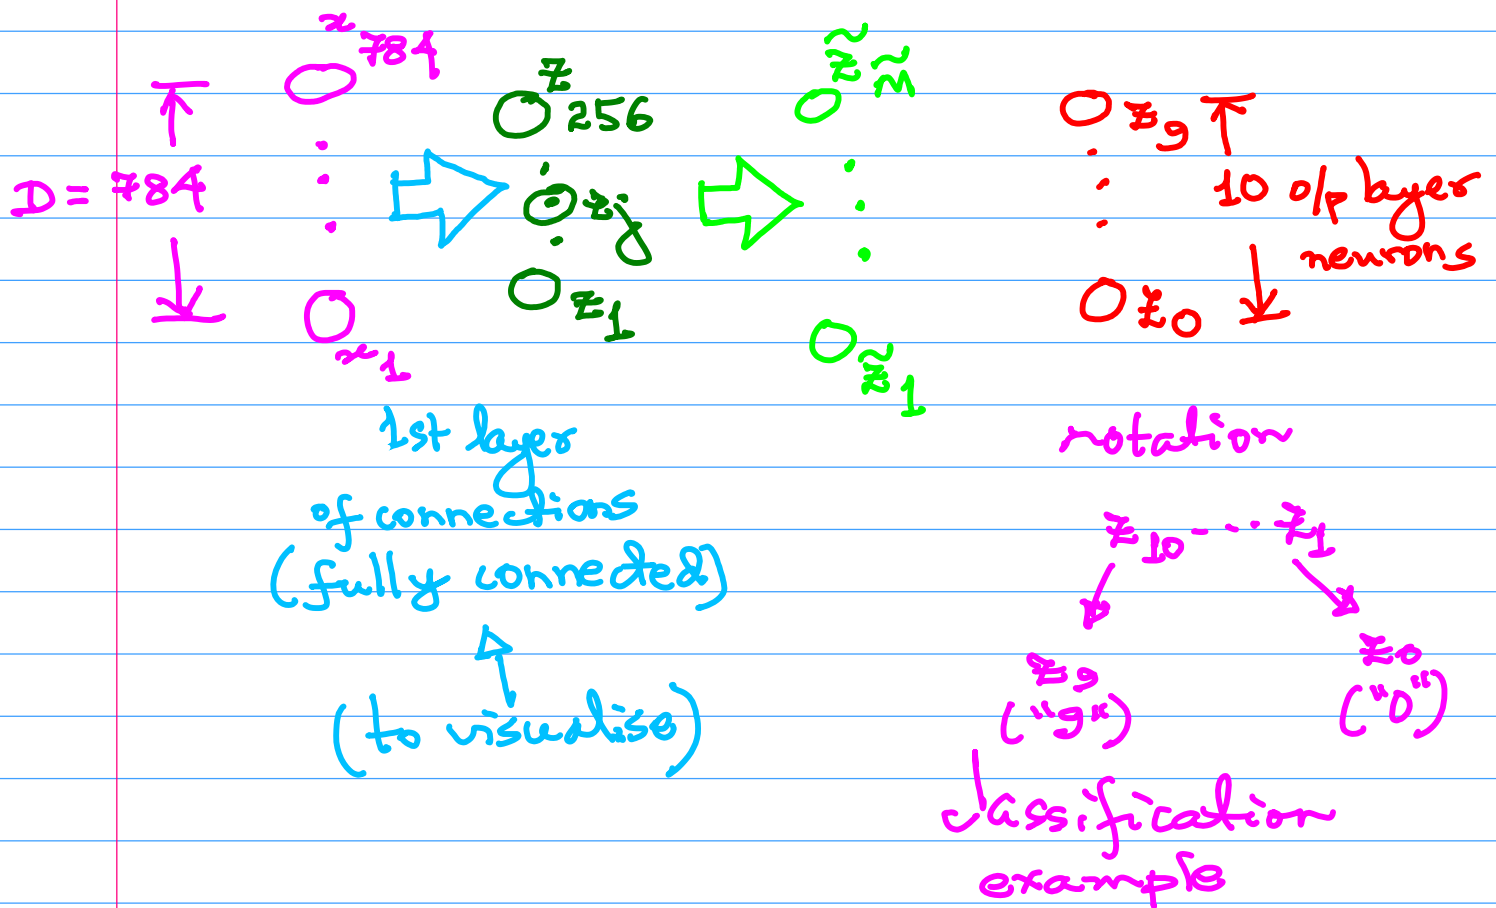 x₇₈₄
z₂₅₆
z̃_m̃
z₉
D = 784
z_j
10 o/p layer
neurons
z₁
z₀
x₁
z̃₁
1st layer
of connections
(fully connected)
(to visualise)
notation
z₁₀ ... z₁
z₉ z₀
("9") ("0")
classification
example